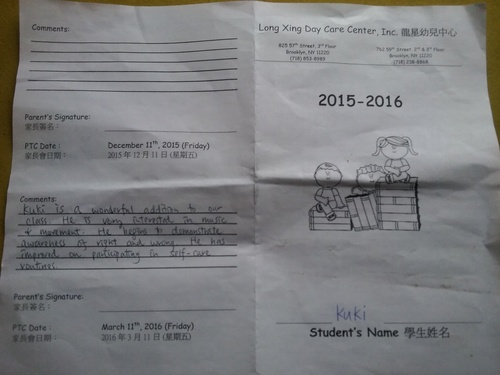 Comments:
Parent's Signature:
家長簽名：
PTC Date : December 11th, 2015 (Friday)
家長會日期： 2015 年 12 月 11 日 (星期五)
Comments:
Kuki is a wonderful addition to our
class. He is very interested in music
& movement. He begins to demonstrate
awareness of right and wrong. He has
improved on participating in self-care
routines.
Parent's Signature:
家長簽名：
PTC Date : March 11th, 2016 (Friday)
家長會日期： 2016 年 3 月 11 日 (星期五)
Long Xing Day Care Center, Inc. 龍星幼兒中心
825 57th Street, 3rd Floor
Brooklyn, NY 11220
(718) 853-8989
762 59th Street, 2nd & 3rd Floor
Brooklyn, NY 11220
(718) 238-8868
2015-2016
Kuki
Student's Name 學生姓名